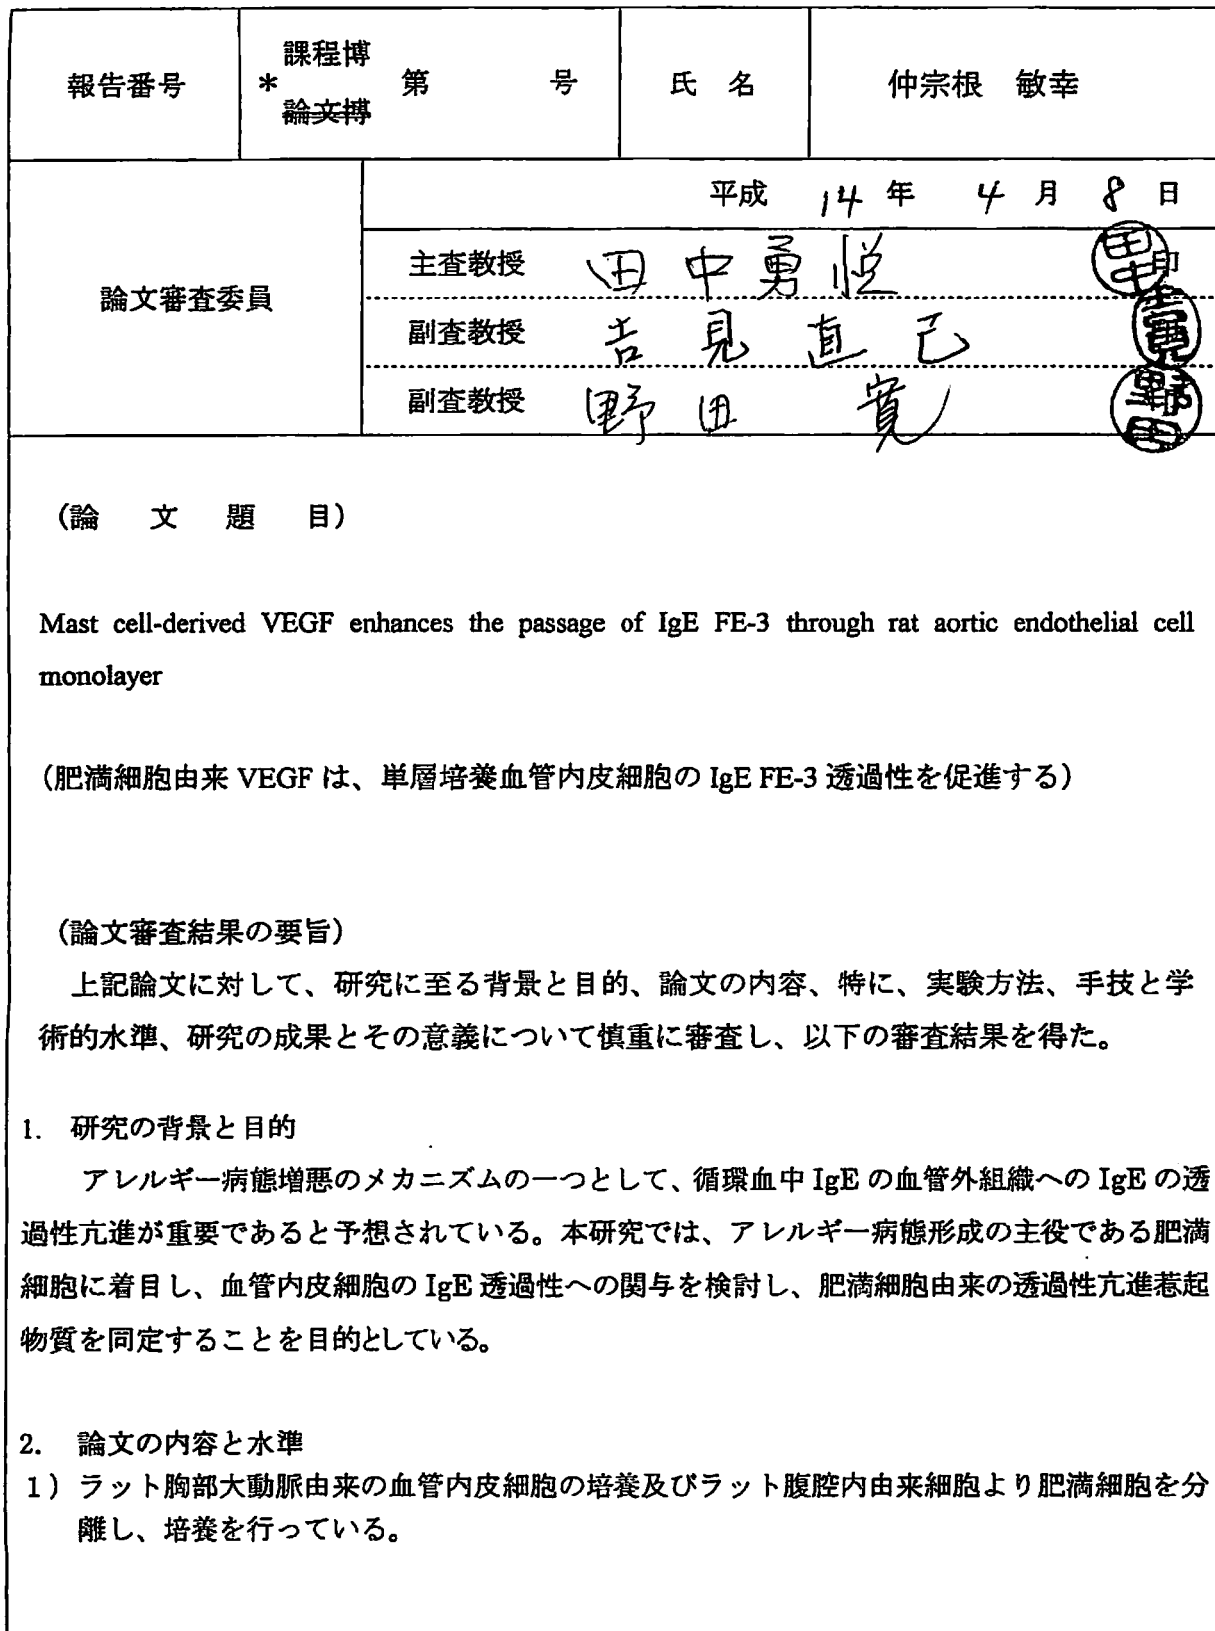 報告番号 * 課程博 第 号 氏 名 仲宗根 敏幸
論文博
平成 14 年 4 月 8 日
論文審査委員
主査教授 田中勇悦 印
副査教授 吉見直己
副査教授 野田 寛
(論 文 題 目)
Mast cell-derived VEGF enhances the passage of IgE FE-3 through rat aortic endothelial cell
monolayer
(肥満細胞由来 VEGF は、単層培養血管内皮細胞の IgE FE-3 透過性を促進する)
(論文審査結果の要旨)
上記論文に対して、研究に至る背景と目的、論文の内容、特に、実験方法、手技と学
術的水準、研究の成果とその意義について慎重に審査し、以下の審査結果を得た。
1. 研究の背景と目的
アレルギー病態増悪のメカニズムの一つとして、循環血中 IgE の血管外組織への IgE の透
過性亢進が重要であると予想されている。本研究では、アレルギー病態形成の主役である肥満
細胞に着目し、血管内皮細胞の IgE 透過性への関与を検討し、肥満細胞由来の透過性亢進惹起
物質を同定することを目的としている。
2. 論文の内容と水準
1) ラット胸部大動脈由来の血管内皮細胞の培養及びラット腹腔内由来細胞より肥満細胞を分
離し、培養を行っている。